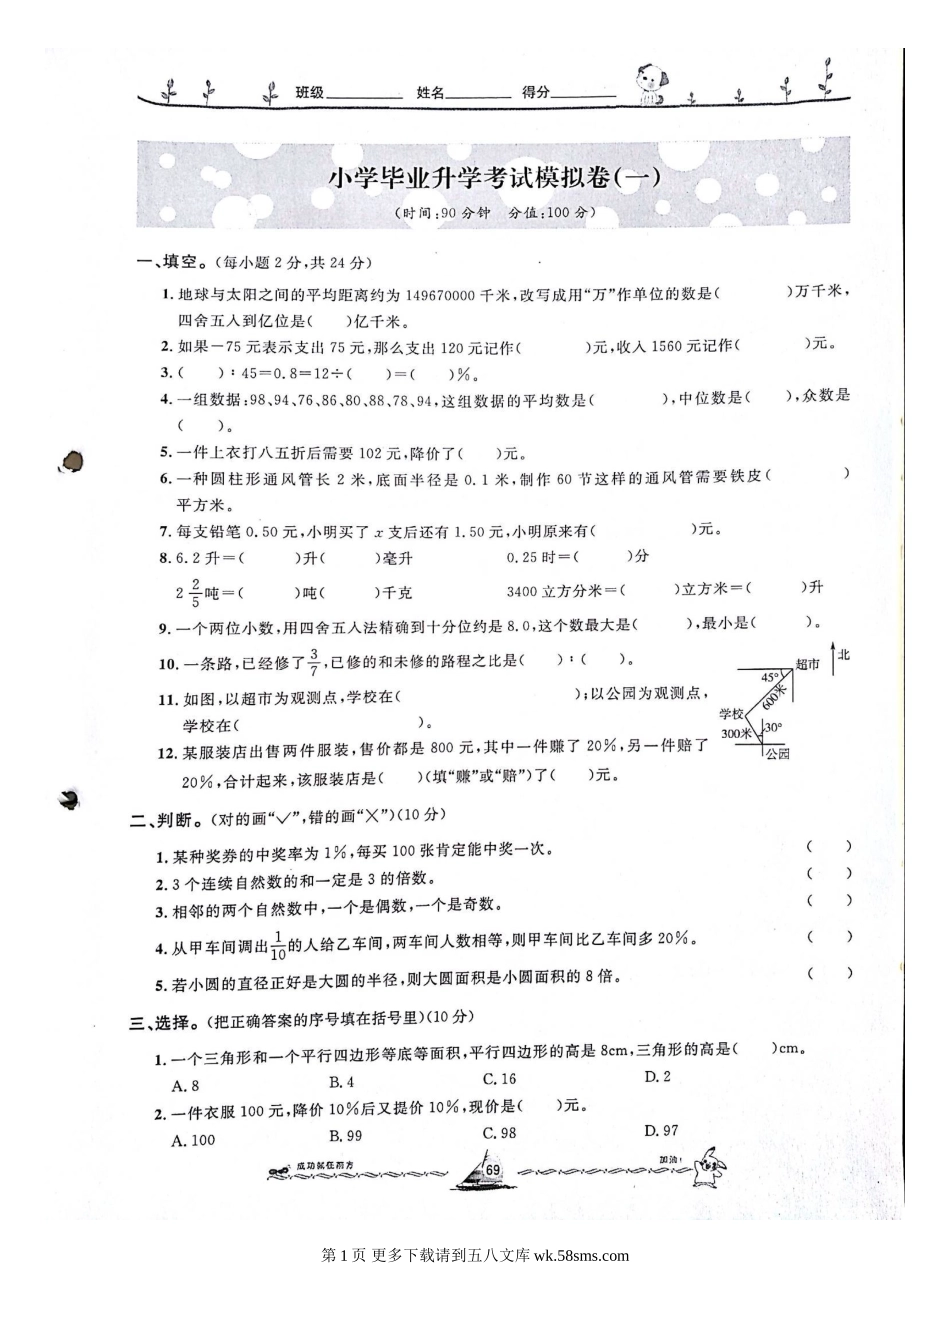 班级 姓名 得分
小学毕业升学考试模拟卷(一)
(时间:90分钟 分值:100分)
一、填空。(每小题2分,共24分)
1. 地球与太阳之间的平均距离约为149670000千米,改写成用“万”作单位的数是( )万千米,
四舍五入到亿位是( )亿千米。
2. 如果－75元表示支出75元,那么支出120元记作( )元,收入1560元记作( )元。
3. ( ):45=0.8=12÷( )=( )%。
4. 一组数据:98、94、76、86、80、88、78、94,这组数据的平均数是( ),中位数是( ),众数是
( )。
5. 一件上衣打八五折后需要102元,降价了( )元。
6. 一种圆柱形通风管长2米,底面半径是0.1米,制作60节这样的通风管需要铁皮( )
平方米。
7. 每支铅笔0.50元,小明买了x支后还有1.50元,小明原来有( )元。
8. 6.2升=( )升( )毫升 0.25时=( )分
2 2/5吨=( )吨( )千克 3400立方分米=( )立方米=( )升
9. 一个两位小数,用四舍五入法精确到十分位约是8.0,这个数最大是( ),最小是( )。
10. 一条路,已经修了3/7,已修的和未修的路程之比是( ):( )。
11. 如图,以超市为观测点,学校在( );以公园为观测点,
学校在( )。
北
超市
45°
600米
学校
300米
30°
公园
12. 某服装店出售两件服装,售价都是800元,其中一件赚了20%,另一件赔了
20%,合计起来,该服装店是( )(填“赚”或“赔”)了( )元。
二、判断。(对的画“✓”,错的画“×”)(10分)
1. 某种奖券的中奖率为1%,每买100张肯定能中奖一次。 ( )
2. 3个连续自然数的和一定是3的倍数。 ( )
3. 相邻的两个自然数中,一个是偶数,一个是奇数。 ( )
4. 从甲车间调出1/10的人给乙车间,两车间人数相等,则甲车间比乙车间多20%。 ( )
5. 若小圆的直径正好是大圆的半径,则大圆面积是小圆面积的8倍。 ( )
三、选择。(把正确答案的序号填在括号里)(10分)
1. 一个三角形和一个平行四边形等底等面积,平行四边形的高是8cm,三角形的高是( )cm。
A. 8 B. 4 C. 16 D. 2
2. 一件衣服100元,降价10%后又提价10%,现价是( )元。
A. 100 B. 99 C. 98 D. 97
成功就在前方 69 加油!
第 1 页 更多下载请到五八文库 wk.58sms.com